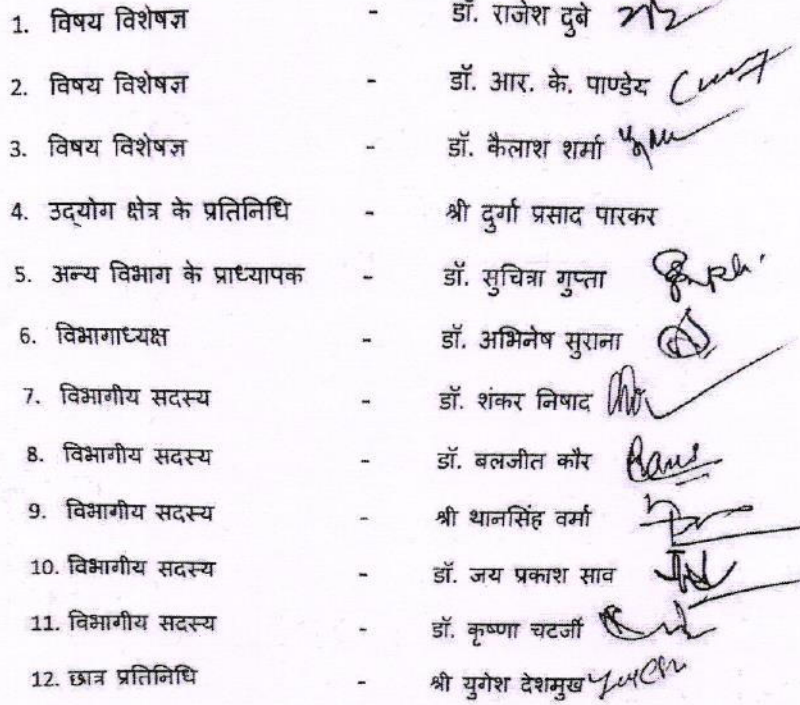 1. विषय विशेषज्ञ - डॉ. राजेश दुबे
2. विषय विशेषज्ञ - डॉ. आर. के. पाण्डेय
3. विषय विशेषज्ञ - डॉ. कैलाश शर्मा
4. उद्योग क्षेत्र के प्रतिनिधि - श्री दुर्गा प्रसाद पारकर
5. अन्य विभाग के प्राध्यापक - डॉ. सुचित्रा गुप्ता
6. विभागाध्यक्ष - डॉ. अभिनेष सुराना
7. विभागीय सदस्य - डॉ. शंकर निषाद
8. विभागीय सदस्य - डॉ. बलजीत कौर
9. विभागीय सदस्य - श्री थानसिंह वर्मा
10. विभागीय सदस्य - डॉ. जय प्रकाश साव
11. विभागीय सदस्य - डॉ. कृष्णा चटर्जी
12. छात्र प्रतिनिधि - श्री युगेश देशमुख